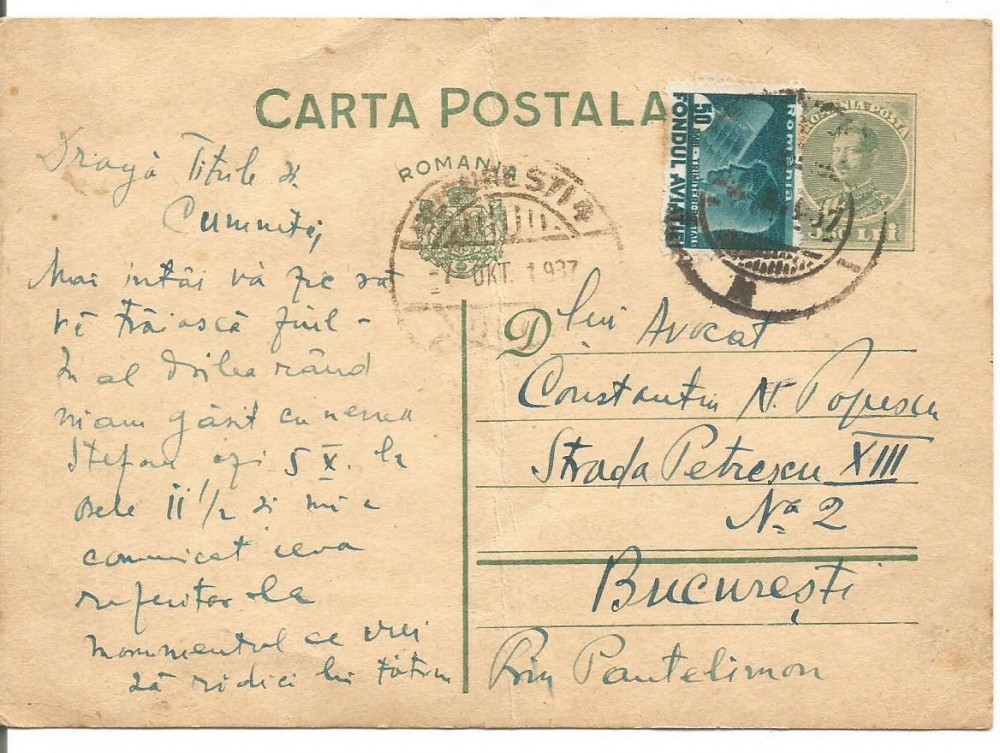 CARTA POSTALA
ROMANIA
50 BANI
TIMBRU
FONDUL AVIAȚIEI
România
ROMANIA POSTA
LEI
BUCUREȘTI 4
-7 OKT. 1937
Dragă Titule și
Cumnată,
Mai întâi vă zic să
vă trăiască fiul –
În al doilea rând
m'am găsit cu nenea
Ștefan azi 5 X. la
orele 11 1/2 și mi-a
comunicat ceva
referitor la
monumentul ce vrei
să ridici lui tătım
D lui Avocat
Constantin N. Popescu
Strada Petrescu XIII
No 2
București
Prin Pantelimon